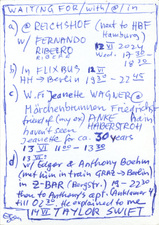 WAITING FOR/with/@/in
a) @ REICHSHOF (next to HBF
Hamburg)
w/ FERNANDO
RIBEIRO
12 VI 2024
Wed. 17 30
18 30
b) in FLIXBUS 12 VI
HH → Berlin 19 30 - 22 45
c) W. f Jeanette WAGNER @
Märchenbrunnen Friedrichsh
friend of (my ex) ANKE
HABERSTROH
haven't seen
Jeanette for ca 30 years
13 VI 11 00 - 13 30
13 VI!
d) w/ Edgar & Anthony Boehm
(met him in train GRAZ → Berlin)
in Z-BAR (Bergstr.) M - 22 30
then to Anthony's apt.
till 02 30. He explained to me
14 VI TAYLOR SWIFT